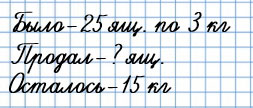 Было-25 ящ. по 3 кг
Продал-? ящ.
Осталось-15 кг